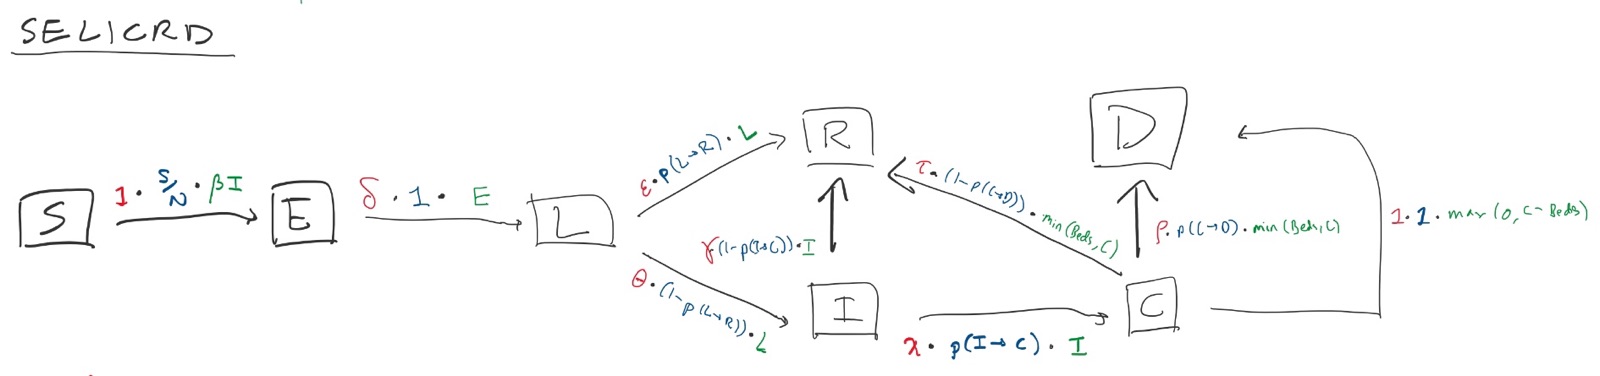 SELICRD
S
1 · S/N · βI
E
δ · 1 · E
L
ε · p(L→R) · L
θ · (1-p(L→R)) · L
R
γ(1-p(I→C)) · I
I
λ · p(I→C) · I
τ · (1-p(C→D)) · min(Beds, C)
C
D
ρ · p(C→D) · min(Beds, C)
1 · 1 · max(0, C-Beds)